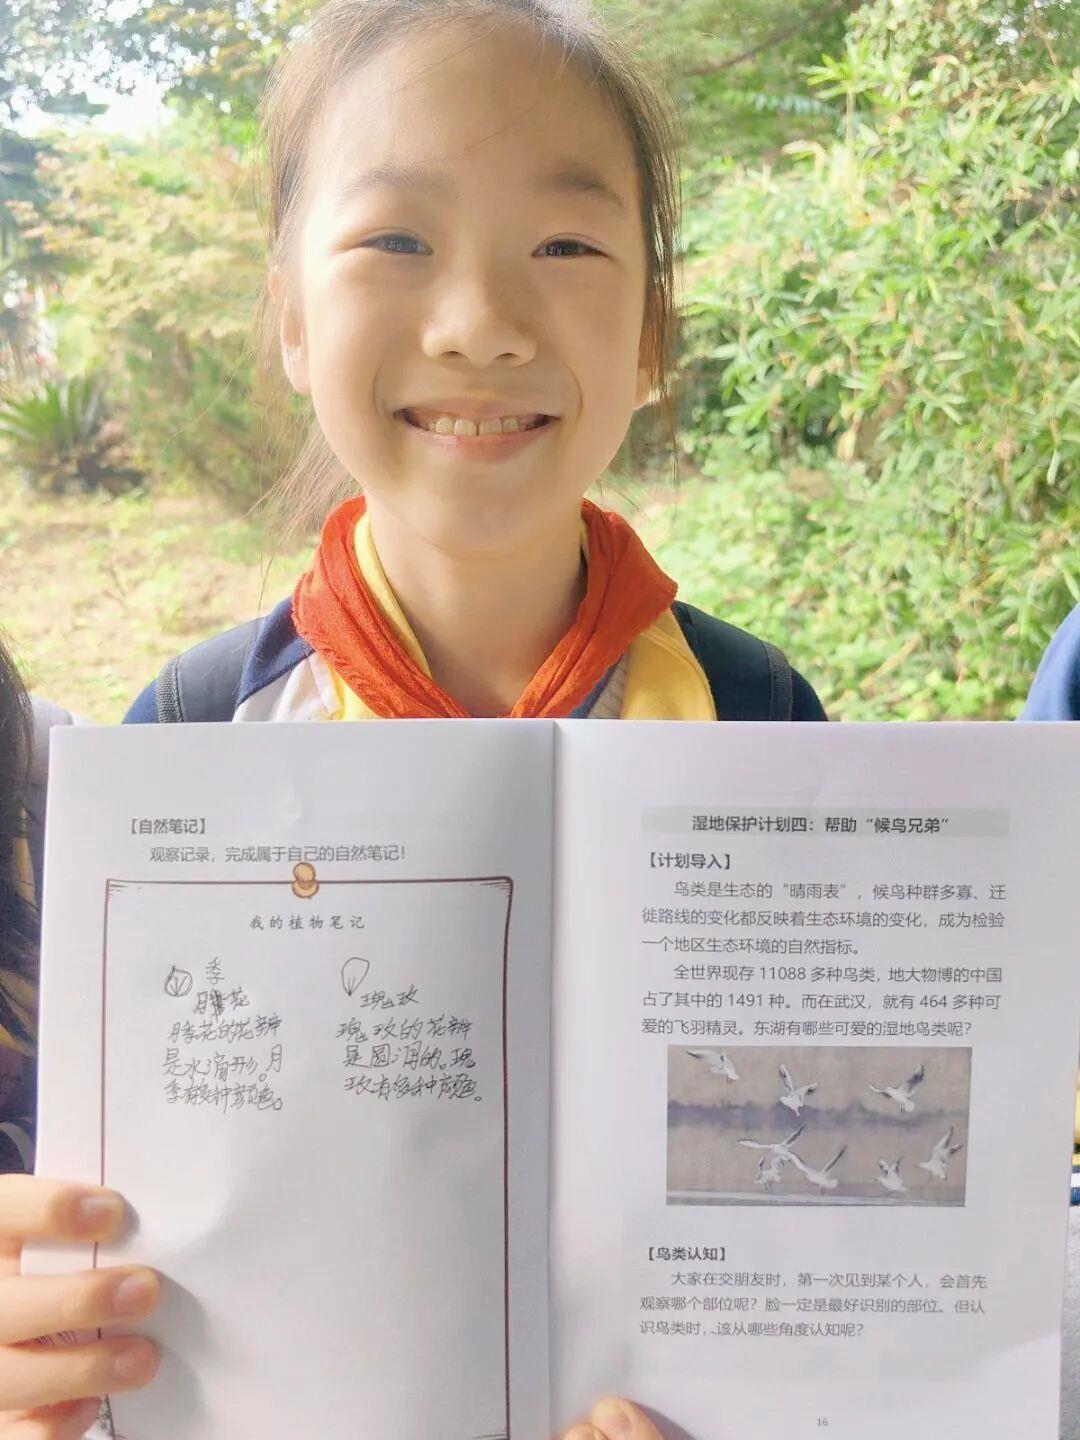 【自然笔记】
观察记录，完成属于自己的自然笔记！
我的植物笔记
季
月季花
月季花的花瓣
是水滴形。月
季有多种颜色。
瑰玫
瑰玫的花瓣
是圆润的。瑰
玫有多种颜色。
湿地保护计划四：帮助“候鸟兄弟”
【计划导入】
鸟类是生态的“晴雨表”，候鸟种群多寡、迁
徙路线的变化都反映着生态环境的变化，成为检验
一个地区生态环境的自然指标。
全世界现存 11088 多种鸟类，地大物博的中国
占了其中的 1491 种。而在武汉，就有 464 多种可
爱的飞羽精灵。东湖有哪些可爱的湿地鸟类呢？
【鸟类认知】
大家在交朋友时，第一次见到某个人，会首先
观察哪个部位呢？脸一定是最好识别的部位。但认
识鸟类时，该从哪些角度认知呢？
16